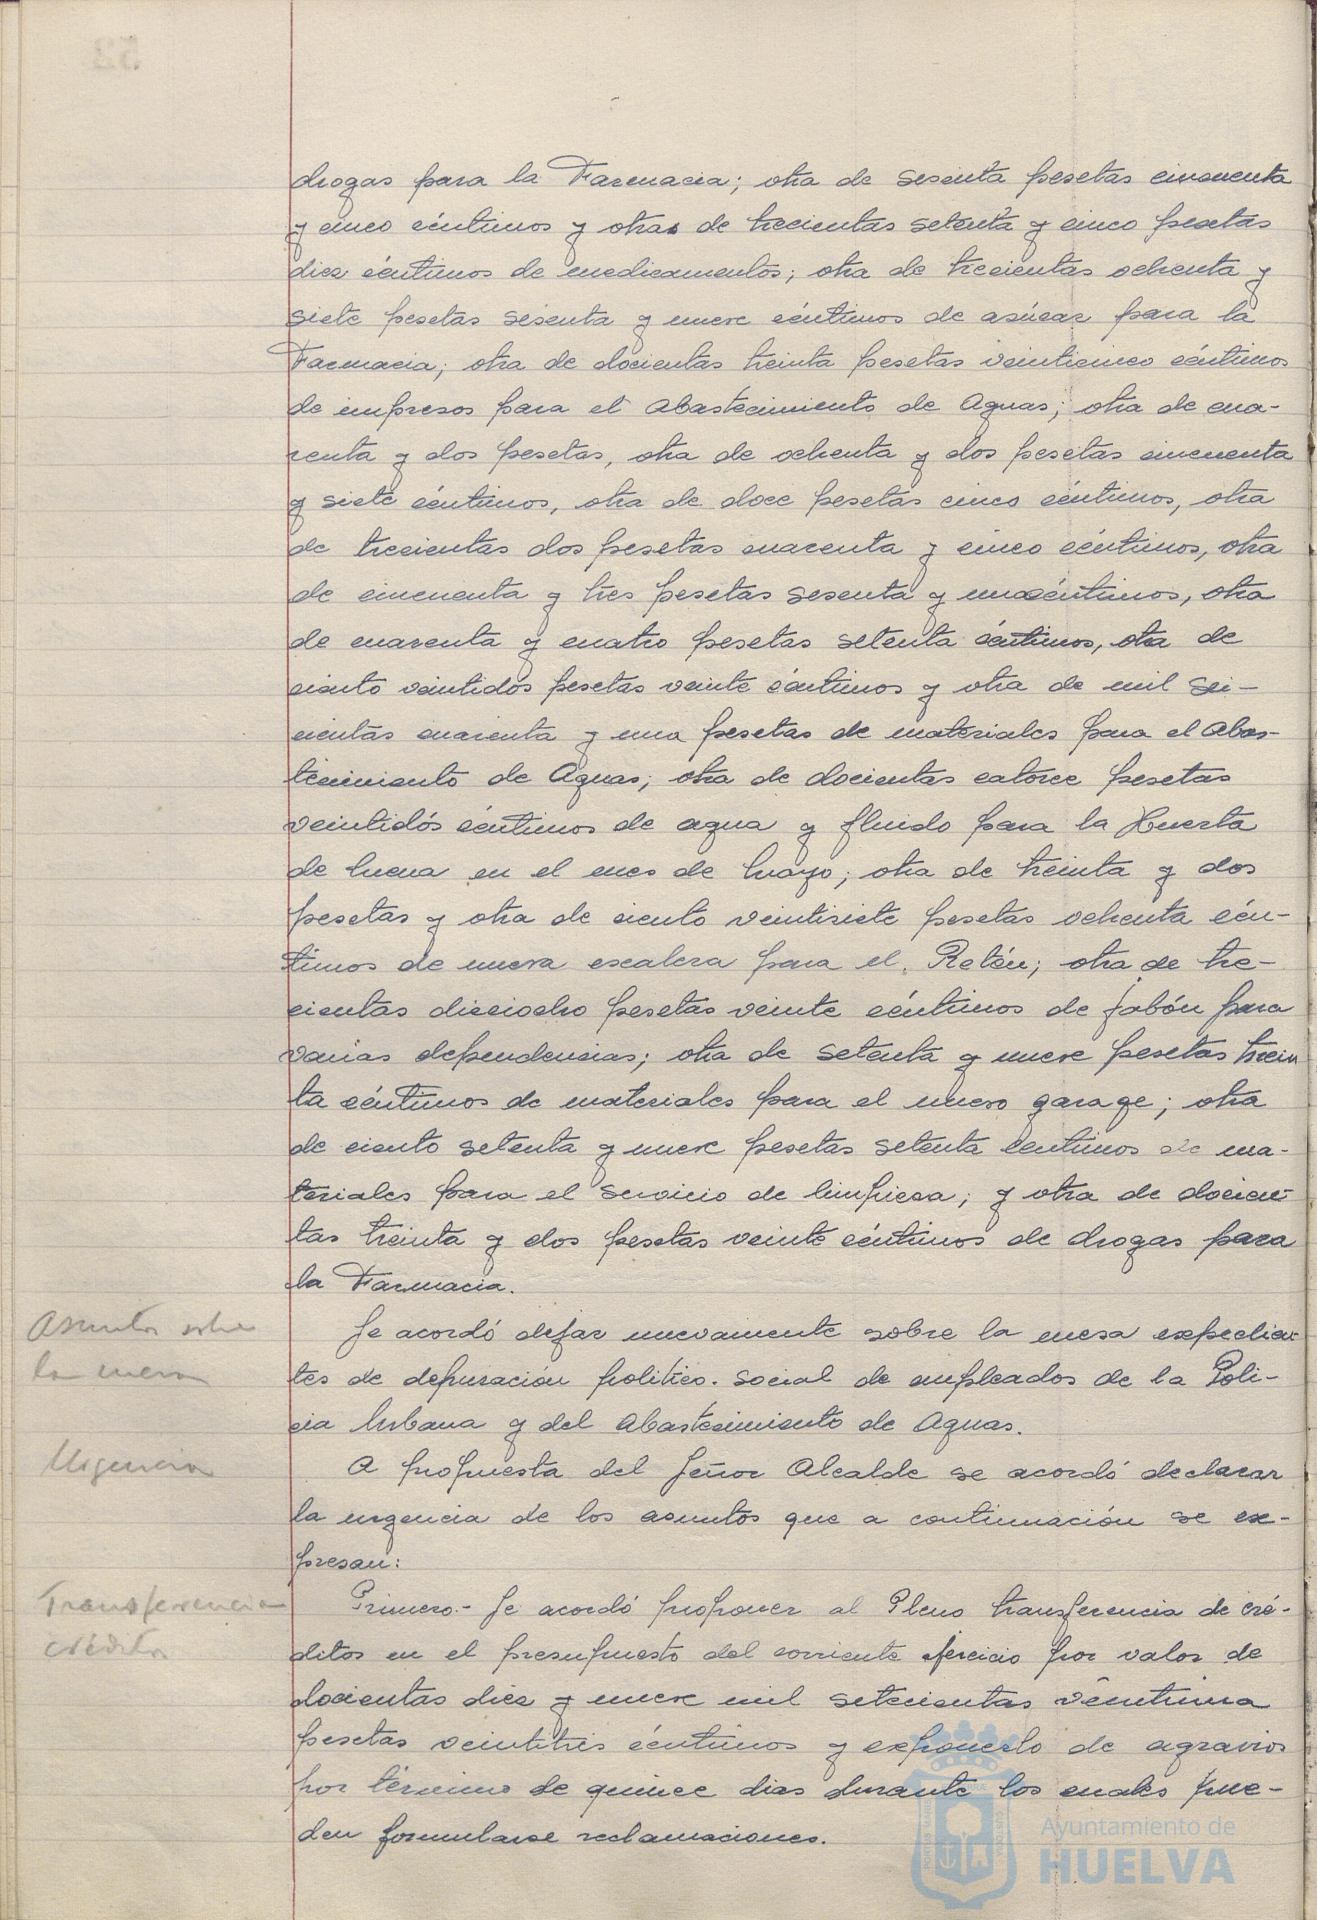 drogas para la Farmacia; otra de sesenta pesetas cincuenta
y cinco céntimos y otras de trecientas setenta y cinco pesetas
diez céntimos de medicamentos; otra de trecientas ochenta y
siete pesetas sesenta y nueve céntimos de azúcar para la
Farmacia; otra de docientas treinta pesetas veinticinco céntimos
de impresos para el Abastecimiento de Aguas; otra de cua-
renta y dos pesetas, otra de ochenta y dos pesetas cincuenta
y siete céntimos, otra de doce pesetas cinco céntimos, otra
de trecientas dos pesetas cuarenta y cinco céntimos, otra
de cincuenta y tres pesetas sesenta y un céntimos, otra
de cuarenta y cuatro pesetas setenta céntimos, otra de
ciento veintidós pesetas veinte céntimos y otra de mil sei-
cientas cuarenta y una pesetas de materiales para el Abas-
tecimiento de Aguas; otra de docientas catorce pesetas
veintidós céntimos de agua y fluido para la Huerta
de Mena en el mes de Mayo; otra de treinta y dos
pesetas y otra de ciento veintisiete pesetas ochenta cén-
timos de nueva escalera para el Retén; otra de tre-
cientas dieciocho pesetas veinte céntimos de jabón para
varias dependencias; otra de setenta y nueve pesetas trein
ta céntimos de materiales para el nuevo garage; otra
de ciento setenta y nueve pesetas setenta céntimos de ma-
teriales para el servicio de limpieza; y otra de docien-
tas treinta y dos pesetas veinte céntimos de drogas para
la Farmacia.
Asuntos sobre
la mesa
Se acordó dejar nuevamente sobre la mesa expedien-
tes de depuración político-social de empleados de la Poli-
cia Urbana y del Abastecimiento de Aguas.
Urgencia
A propuesta del Señor Alcalde se acordó declarar
la urgencia de los asuntos que a continuación se ex-
presan:
Transferencia
créditos
Primero.- Se acordó proponer al Pleno transferencia de cré-
ditos en el presupuesto del corriente ejercicio por valor de
docientas diez y nueve mil setecientas veintiuna
pesetas veintitrés céntimos y exponerlo de agravios
por término de quince dias durante los cuales pue-
den formularse reclamaciones.
Ayuntamiento de
HUELVA